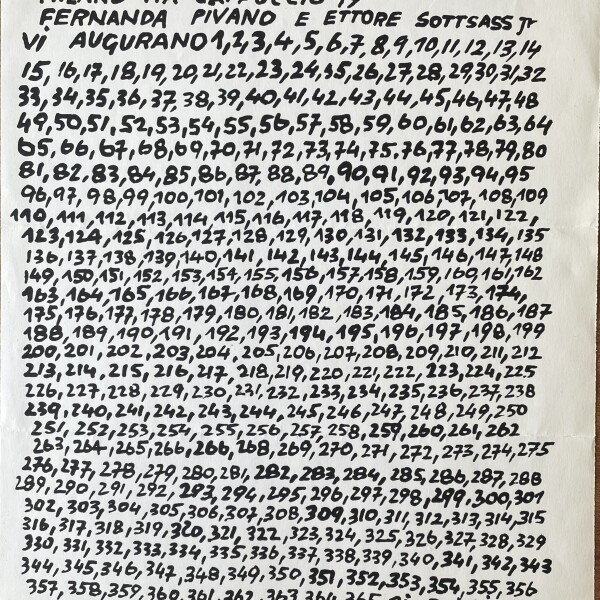 MILANO VIA CAPPUCCIO 19
FERNANDA PIVANO E ETTORE SOTTSASS Jr
Vi AUGURANO 1,2,3,4,5,6,7,8,9,10,11,12,13,14
15,16,17,18,19,20,21,22,23,24,25,26,27,28,29,30,31,32
33,34,35,36,37,38,39,40,41,42,43,44,45,46,47,48
49,50,51,52,53,54,55,56,57,58,59,60,61,62,63,64
65,66,67,68,69,70,71,72,73,74,75,76,77,78,79,80
81,82,83,84,85,86,87,88,89,90,91,92,93,94,95
96,97,98,99,100,101,102,103,104,105,106,107,108,109
110,111,112,113,114,115,116,117,118,119,120,121,122,
123,124,125,126,127,128,129,130,131,132,133,134,135
136,137,138,139,140,141,142,143,144,145,146,147,148
149,150,151,152,153,154,155,156,157,158,159,160,161,162
163,164,165,166,167,168,169,170,171,172,173,174,
175,176,177,178,179,180,181,182,183,184,185,186,187
188,189,190,191,192,193,194,195,196,197,198,199
200,201,202,203,204,205,206,207,208,209,210,211,212
213,214,215,216,217,218,219,220,221,222,223,224,225
226,227,228,229,230,231,232,233,234,235,236,237,238
239,240,241,242,243,244,245,246,247,248,249,250
251,252,253,254,255,256,257,258,259,260,261,262
263,264,265,266,266,268,269,270,271,272,273,274,275
276,277,278,279,280,281,282,283,284,285,286,287,288
289,290,291,292,293,294,295,296,297,298,299,300,301
302,303,304,305,306,307,308,309,310,311,312,313,314,315
316,317,318,319,320,321,322,323,324,325,326,327,328,329
330,331,332,333,334,335,336,337,338,339,340,341,342,343
344,345,346,347,348,349,350,351,352,353,354,355,356
357,358,359,360,361,362,363,364,365